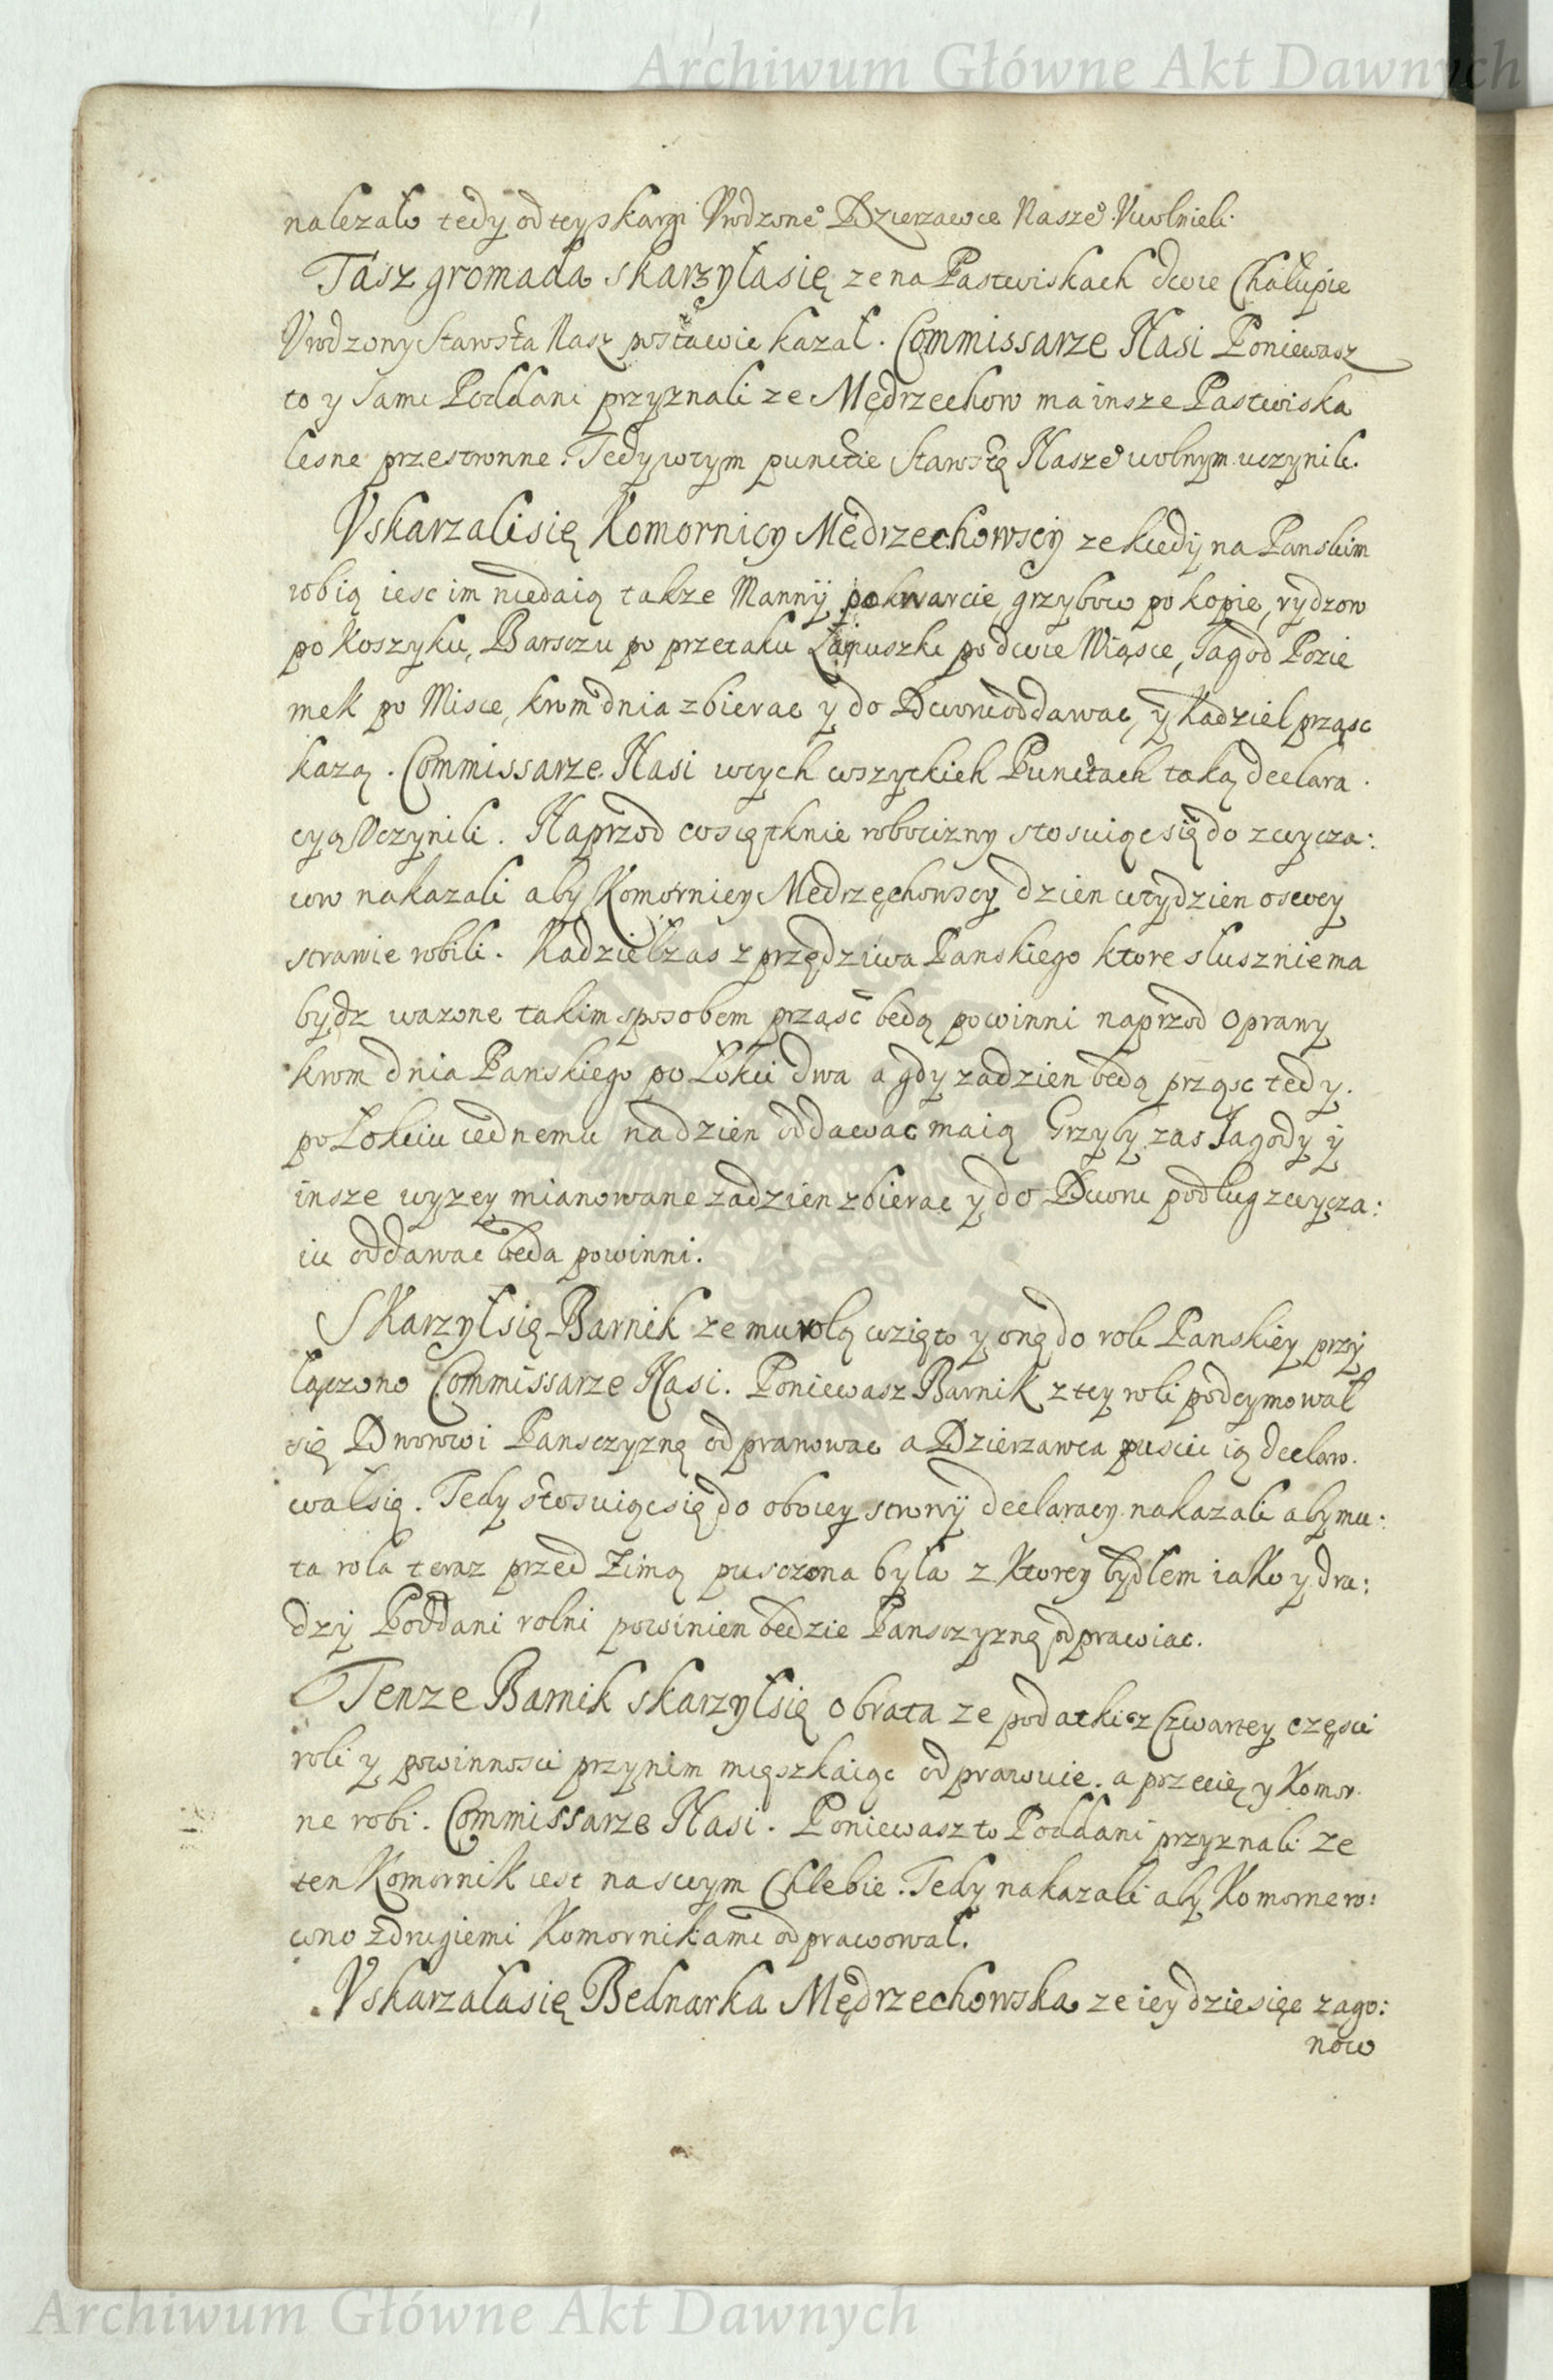 Archiwum Główne Akt Dawnych
nalezało tedy od tey skargi Vrodzone° Dzierzawce Nasze° Vwolnieli.
Tasz gromada skarzyła się ze na Pastwiskach dwie Chałupie
Vrodzony Starosta Nasz postawic kazał. Commissarze Nasi Poniewasz
to y sami Poddani przyznali ze Mędrzechow ma insze Pastwiska
lesne przestronne. Tedy wtym punctie Starostę Nasze° wolnym uczynili.
Vskarzali się Komornicy Mędrzechowscy ze kiedy na Panskim
robią iesc im niedaią takze Manny po kwarcie, grzybow po kopie, rydzow
po Koszyku, Barsczu po przetaku Łapuszki po dwie Miąsce, Jagod Pozie
mek po Misce, krom dnia zbierac y do Dworu oddawac, y Kadziel prząsc
kazą. Commissarze Nasi wtych wszytkich Punctach taką declara
cyą Vczynili. Naprzod co się tknie robocizny stosuiąc się do zwycza:
iow nakazali aby Komornicy Mędrzechowscy dzien wtydzien o swey
strawie robili. Kądziel zas z przędziwa Panskiego ktore słusznie ma
bydz wazone takim sposobem prząsć będą powinni naprzod oprawy
krom dnia Panskiego po Łokci dwa a gdy za dzien będą prząsc tedy
po Łokciu iednemu na dzien oddawac maią Grzyby zas Jagody y
insze wyzey mianowane za dzien zbierac y do Dworu podług zwycza:
iu oddawac będą powinni.
Skarzył się Barnik ze mu rolą wzięto y onę do roli Panskiey przy
łączono Commissarze Nasi. Poniewasz Barnik z tey roli podeymował
się Dworowi Pansczyznę odprawowac a Dzierzawca puscic ią declaro
wał się. Tedy stosuiąc się do oboiey strony declaracy nakazali aby mu
ta rola teraz przed Zimą pusczona była z Ktorey bydłem iako y dru:
dzy Poddani rolni powinien będzie Pansczyznę odprawiac.
Tenze Barnik skarzył się o brata ze podatki z Czwartey częsci
roli y powinnosci przynim mięszkaiąc odprawuie. a przecię y Komor
ne robi. Commissarze Nasi. Poniewasz to Poddani przyznali ze
ten Komornik iest na swym Chlebie. Tedy nakazali aby Komorne ro:
wno z drugiemi Komornikami odprawował.
Vskarzała się Bednarka Mędrzechowska ze iey dziesięc zago:
now
Archiwum Główne Akt Dawnych